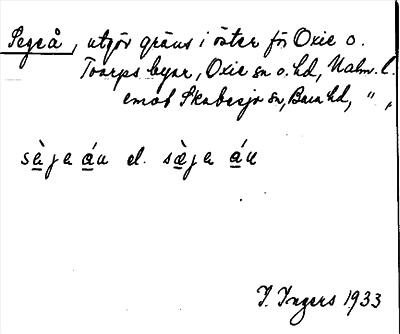 Segeå, utgör gräns i öster för Oxie o.
Toarps byar, Oxie sn o. hd, Malm. l.
emot Skabersjö sn, Bara hd, " "
sèja áu el. sæ̀ja áu
I. Ingers 1933